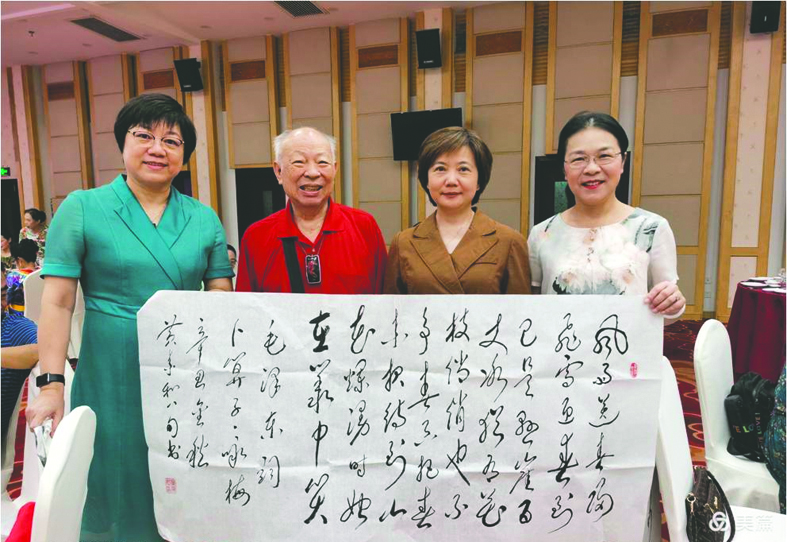 风雨送春归
飞雪迎春到
已是悬崖百
丈冰犹有花
枝俏俏也不
争春只把春
来报待到山
花烂漫时她
在丛中笑
毛泽东词
卜算子·咏梅
辛丑金秋
八旬书
美篇